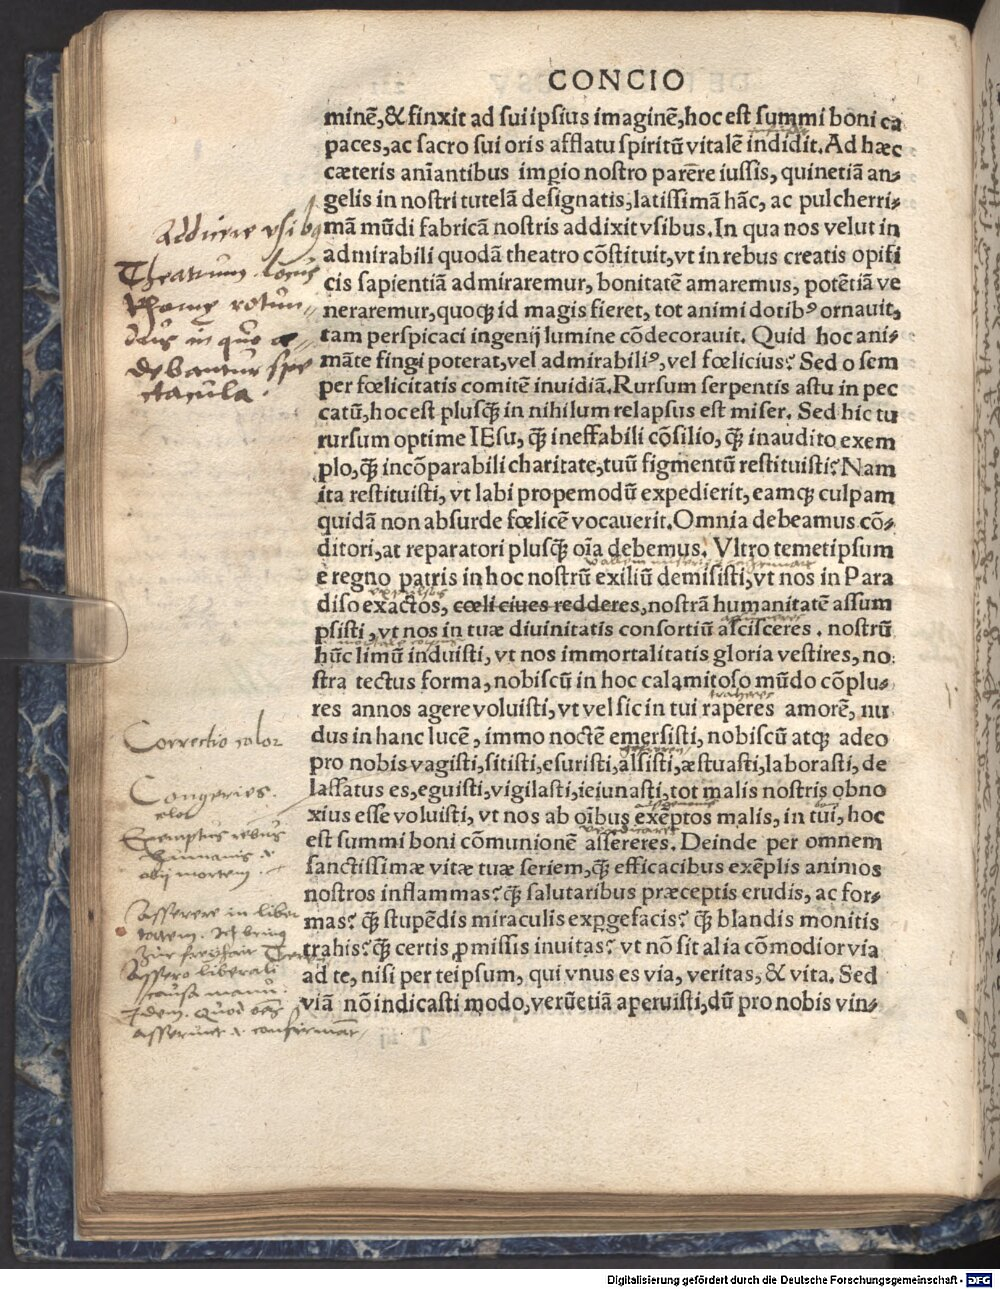 CONCIO
minē,&finxit ad sui ipsius imaginē,hoc est summi boni ca
paces,ac sacro sui oris afflatu spiritū vitalē indidit.Ad hæc
cæteris anīantibus imꝑio nostro parēre iussis, quinetiā an-
gelis in nostri tutelā designatis,latissimā hāc, ac pulcherri-
mā mūdi fabricā nostris addixit vsibus.In qua nos velut in
admirabili quodā theatro cōstituit,vt in rebus creatis opifi
cis sapientiā admiraremur, bonitatē amaremus, potētiā ve
neraremur,quoqꝫ id magis fieret, tot animi dotibꝰ ornauit,
tam perspicaci ingenij lumine cōdecorauit. Quid hoc ani-
māte fingi poterat,vel admirabiliꝰ,vel fœlicius? Sed o sem
per fœlicitatis comitē inuidiā.Rursum serpentis astu in pec
catū,hoc est plusꝙ̄ in nihilum relapsus est miser. Sed hic tu
rursum optime IEsu, ꝙ̄ ineffabili cōsilio, ꝙ̄ inaudito exem
plo,ꝙ̄ incōparabili charitate,tuū figmentū restituisti? Nam
ita restituisti, vt labi propemodū expedierit, eamqꝫ culpam
quidā non absurde fœlicē vocauerit.Omnia debeamus cō-
ditori,at reparatori plusꝙ̄ oīa debemus. Vltro temetipsum
e regno patris in hoc nostrū exiliū demisisti,vt nos in Para
diso exactos, cœli ciues redderes,nostrā humanitatē assum
psisti,vt nos in tuæ diuinitatis consortiū ascisceres. nostrū
hūc limū induisti, vt nos immortalitatis gloria vestires, no-
stra tectus forma, nobiscū in hoc calamitoso mūdo cōplu-
res annos agere voluisti,vt vel sic in tui raperes amorē, nu
dus in hanc lucē, immo noctē emersisti, nobiscū atqꝫ adeo
pro nobis vagisti,sitisti,esuristi,alsisti,æstuasti,laborasti,de
lassatus es,eguisti,vigilasti,ieiunasti,tot malis nostris obno
xius esse voluisti, vt nos ab oībus exēptos malis, in tui, hoc
est summi boni cōmunionē assereres. Deinde per omnem
sanctissimæ vitæ tuæ seriem,ꝙ̄ efficacibus exēplis animos
nostros inflammas?ꝙ̄ salutaribus præceptis erudis, ac for-
mas? ꝙ̄ stupēdis miraculis exꝑgefacis? ꝙ̄ blandis monitis
trahis?ꝙ̄ certis ꝓmissis inuitas? vt nō sit alia cōmodior via
ad te, nisi per teipsum, qui vnus es via, veritas, & vita. Sed
viā nō indicasti modo, verūetiā aperuisti,dū pro nobis vin-
Addicere vsibꝰ
Theatrum locus
Rhomę rotun-
dus in quo æ-
debantur spe
ctacula.
Correctio color
Congeries.
color
Exemptus rebus
humanis .i.
obij mortem.
Asserere in liber
tatem. Ich bring
zur freyhait
Assero liberali
causa manu.
Idem. Quod
asserunt & confirmāt
Digitalisierung gefördert durch die Deutsche Forschungsgemeinschaft - DFG